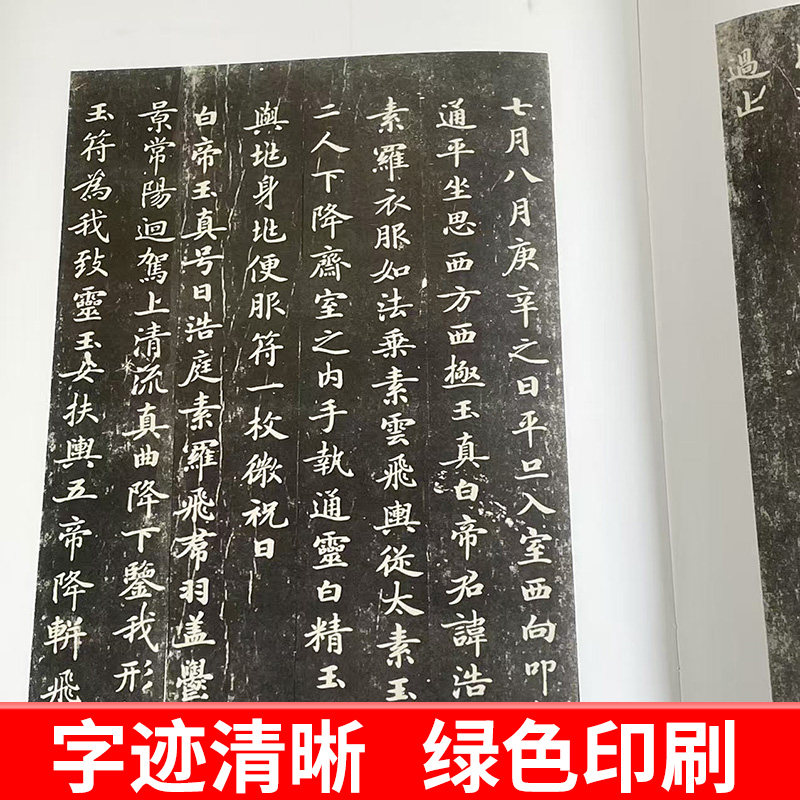 過止
七月八月庚辛之日平旦入室西向叩
通平坐思西方西極玉真白帝君諱浩
素羅衣服如法乗素雲飛輿從太素玉
二人下降齋室之内手執通靈白精玉
與地身地便服符一枚微祝曰
白帝玉真号曰浩庭素羅飛帬羽盖鬱
景常陽迴駕上清流真曲降下鑒我形
玉符為我致靈玉女扶輿五帝降軿飛
字迹清晰 绿色印刷